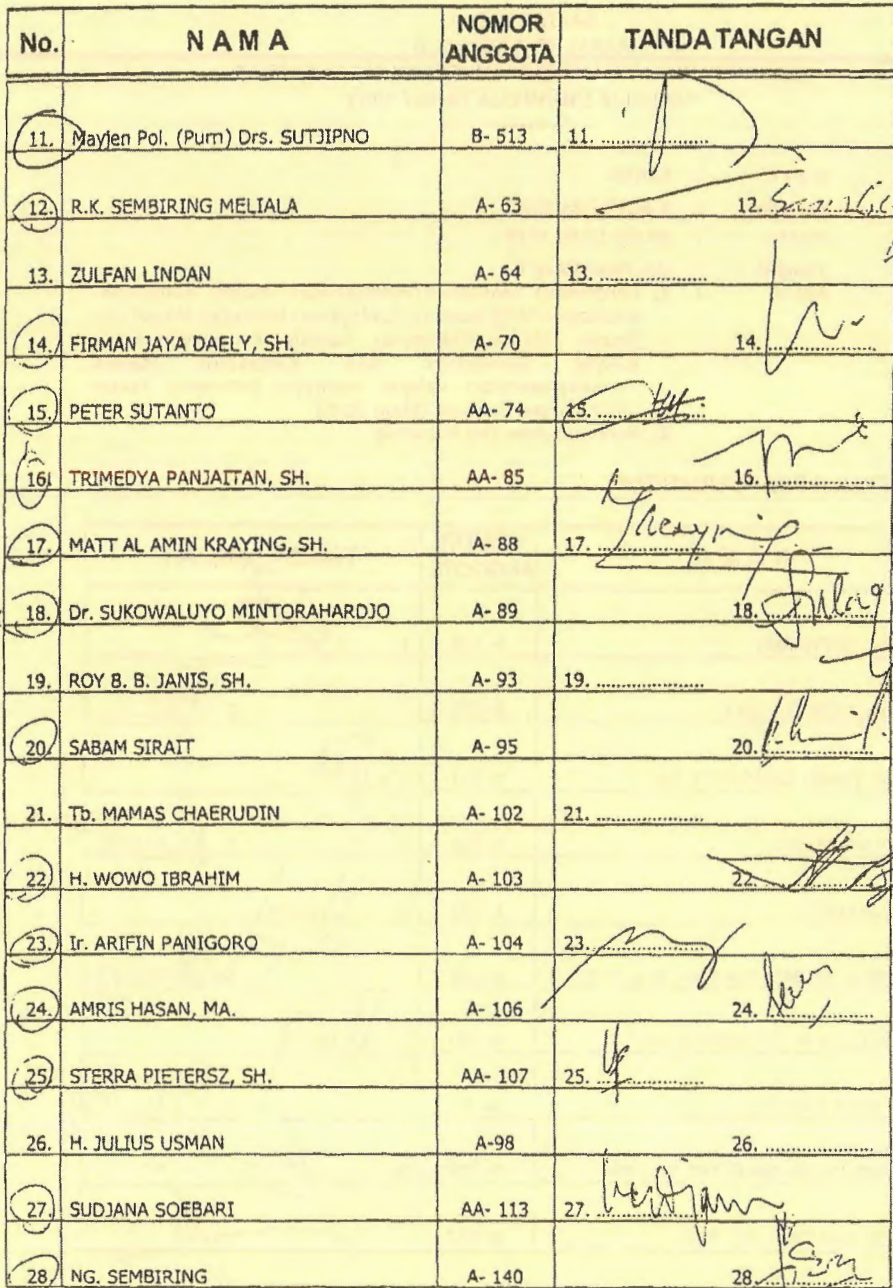 No. NAMA NOMOR ANGGOTA TANDA TANGAN
11. Mayjen Pol. (Purn) Drs. SUTJIPNO B- 513 11. ....................
12. R.K. SEMBIRING MELIALA A- 63 12. ....................
13. ZULFAN LINDAN A- 64 13. ....................
14. FIRMAN JAYA DAELY, SH. A- 70 14. ....................
15. PETER SUTANTO AA- 74 15. ....................
16. TRIMEDYA PANJAITAN, SH. AA- 85 16. ....................
17. MATT AL AMIN KRAYING, SH. A- 88 17. ....................
18. Dr. SUKOWALUYO MINTORAHARDJO A- 89 18. ....................
19. ROY B. B. JANIS, SH. A- 93 19. ....................
20. SABAM SIRAIT A- 95 20. ....................
21. Tb. MAMAS CHAERUDIN A- 102 21. ....................
22. H. WOWO IBRAHIM A- 103 22. ....................
23. Ir. ARIFIN PANIGORO A- 104 23. ....................
24. AMRIS HASAN, MA. A- 106 24. ....................
25. STERRA PIETERSZ, SH. AA- 107 25. ....................
26. H. JULIUS USMAN A-98 26. ....................
27. SUDJANA SOEBARI AA- 113 27. ....................
28. NG. SEMBIRING A- 140 28. ....................